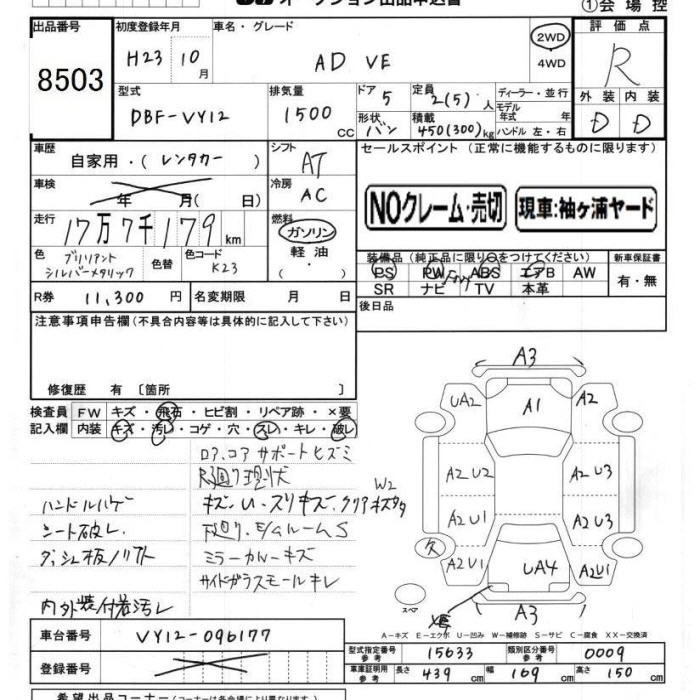 ①会場控
出品番号 8503
初度登録年月 H23 10月
車名・グレード AD VE
2WD
4WD
評価点 R
型式 DBF-VY12
排気量 1500 CC
ドア 5
定員 2(5)人
ディーラー・並行
モデル年式 年式
外装 内装
D D
形状 バン
積載 450(300)kg
ハンドル 左・右
車歴 自家用・(レンタカー)
シフト AT
セールスポイント(正常に機能するものに限ります)
車検 年 月(日)
冷房 AC
NOクレーム・売切
現車:袖ヶ浦ヤード
走行 17万7千179km
燃料 ガソリン
軽油
色 ブリリアントシルバーメタリック
色替
色コード K23
装備品(純正品に限り○をつけてください)
新車保証書
PS PW ABS エアB AW
有・無
SR ナビ TV 本革
R券 11,300円
名変期限 月 日
後日品
注意事項申告欄(不具合内容等は具体的に記入して下さい)
修復歴 有〔箇所 〕
検査員 FW キズ・飛石・ヒビ割・リペア跡・×要
記入欄 内装 キズ・汚レ・コゲ・穴・スレ・キレ・破レ
コアサポートヒズミ
現状
ハンドルハゲ
キズ・U・スリキズ・クリア
W2
シート破レ
下廻リ・
ルームS
ミラーカバーキズ
サイドガラスモールキレ
内外装付着汚レ
A3
UA2 A1 A2
A2 U2 A2 U3
A2 U1 A2 U3
A2 U1 UA4 A2U1
スペア
XE A3
A-キズ E-エクボ U-凹み W-補修跡 S-サビ C-腐食 XX-交換済
車台番号 VY12-096177
型式指定番号 参考 15633
類別区分番号 参考 0009
登録番号
車庫証明用 参考 長さ 439cm 幅 169cm 高さ 150cm
希望出品コーナー